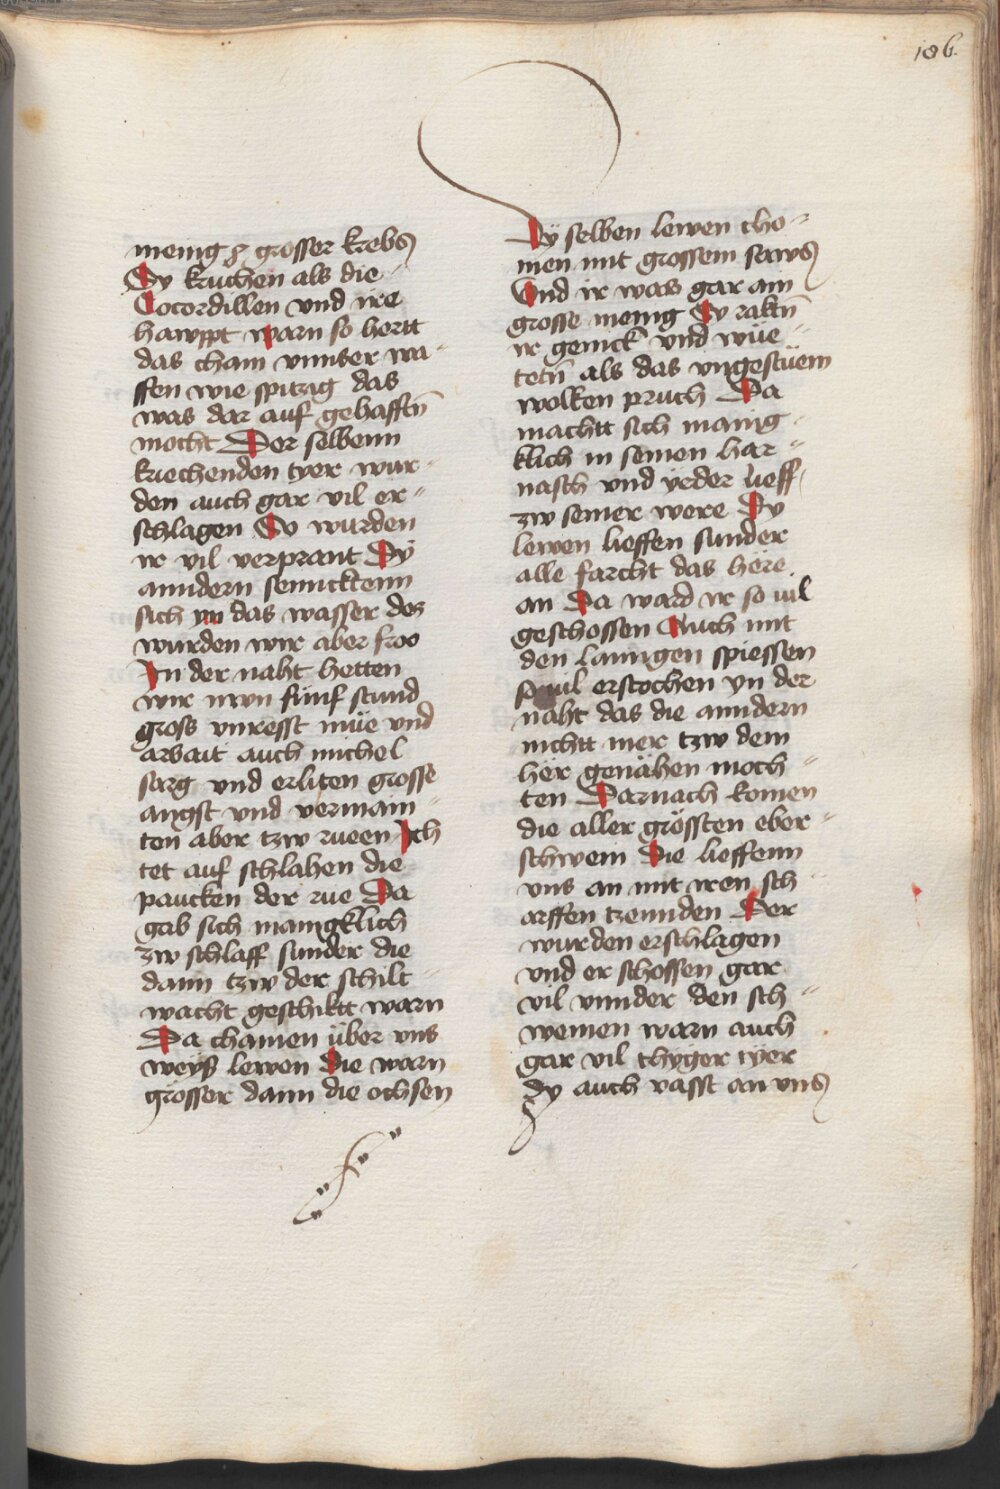 186.
menig der grosser krebs
Dy kruchen als die
Cocordillen vnd ire
hawppt warn so hertt
das cham vnnser wa-
ffen wie spitzig das
was dar auf gehafften
mocht Der selbenn
kriechenden tyer wur-
den auch gar vil er-
schlagen So wurden
ir vil verprant Dÿ
anndern sennicktenn
sich yn das wasser des
wurden wir aber froo
In der naht hetten
wir nwn fünf stund
gross vnresst müe vnd
arbait auch michel
sarg vnd erliten grosse
angst vnd vermain-
ten aber tzw rueen Ich
tet auf schlahen die
paucken der rue Da
gab sich manigklich
zw schlaff sunder die
dann tzw der schilt-
wacht geschiktt warn
Da chamen über vns
weyß lewen Die warn
grosser dann die ochsen
Dÿ selben lewen cho-
men mit grossem saws
Vnd ir was gar ain
grosse menig Dy raktn
ir genick vnd wüe-
tetn als das vngestüem
wolken pruch Da
machtt sich manig-
klich in seinen har-
nasch vnd yeder lieff
zw seiner were Dy
lewen lieffen sunder
alle farcht das here
an Da ward ir so uil
geschossen Auch mit
den lanngen spiessen
so uil erstochen yn der
naht das die anndern
nichtt mer tzw dem
her genähen moch-
ten Darnach komen
die aller grössten eber-
schwein Die lieffenn
vns an mit iren sch-
arffen tzennden Der
wurden erschlagen
vnd er schossen gar
vil vnnder den sch-
weinen warn auch
gar vil thyger tyer
dy auch vasst an vns